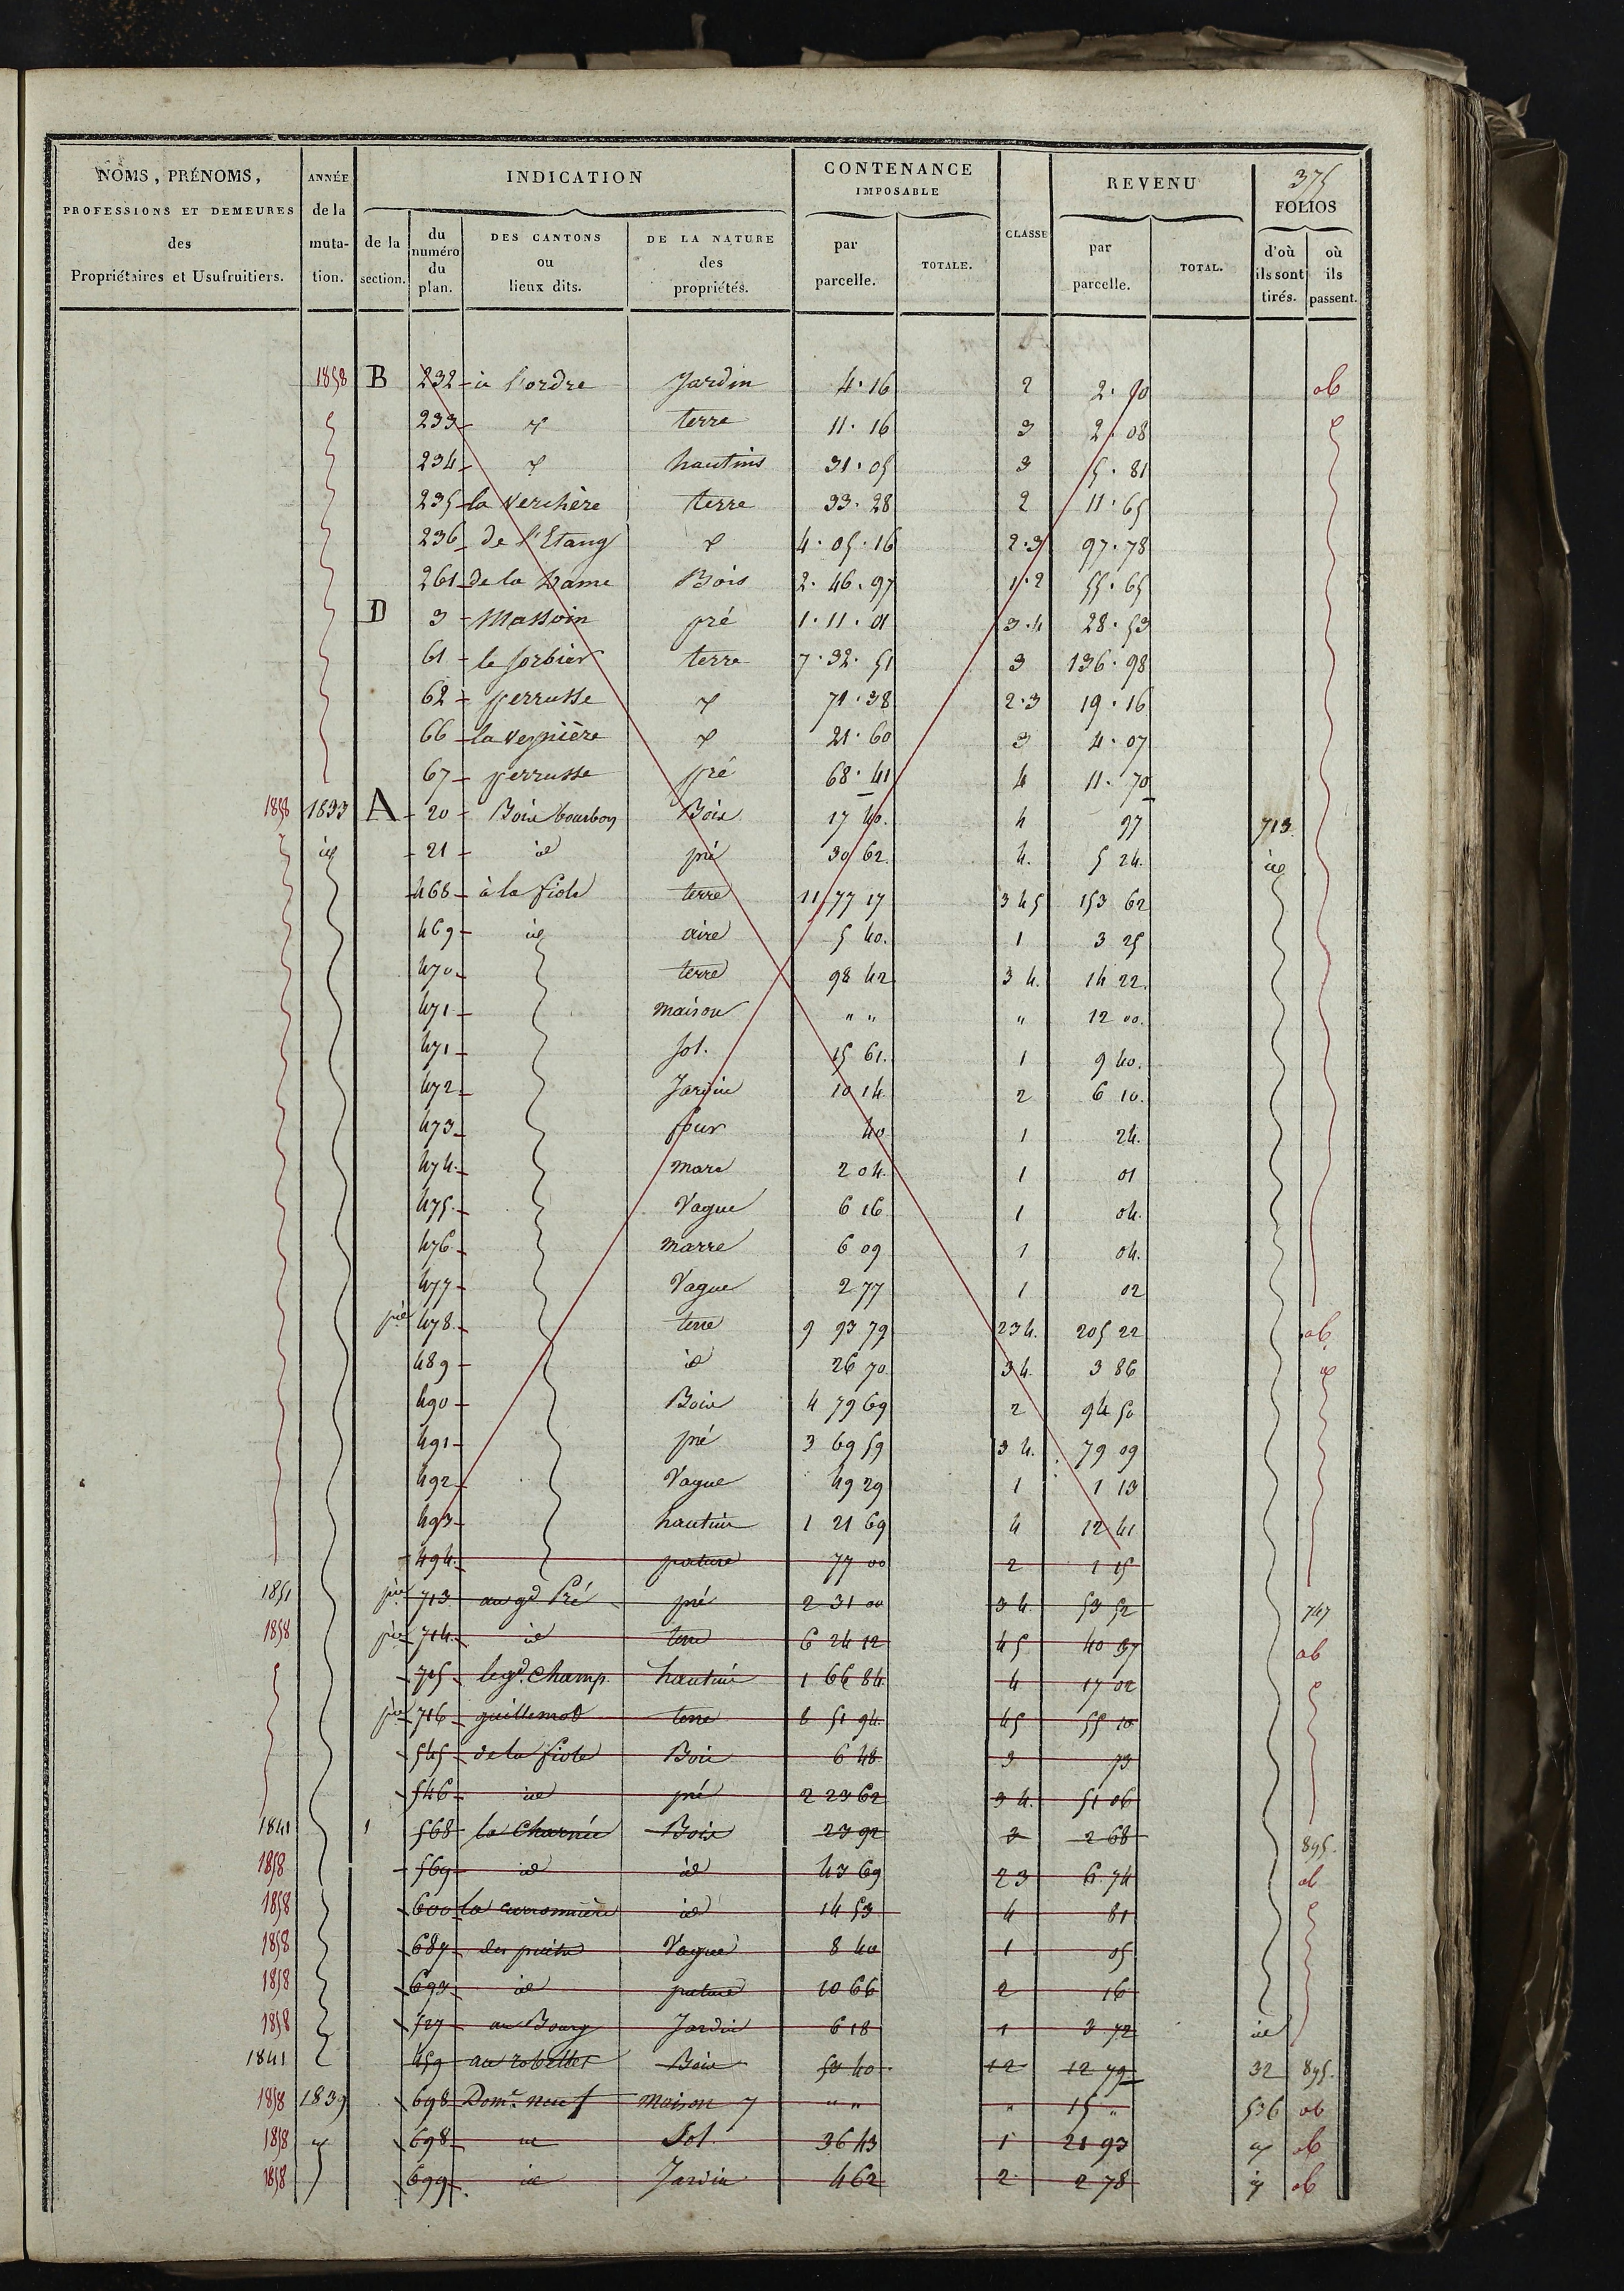 375
NOMS, PRÉNOMS, PROFESSIONS ET DEMEURES des Propriétaires et Usufruitiers. ANNÉE de la muta- tion. INDICATION CONTENANCE IMPOSABLE CLASSE REVENU FOLIOS
de la section. du numéro du plan. DES CANTONS ou lieux dits. DE LA NATURE des propriétés. par parcelle. TOTALE. par parcelle. TOTAL. d'où ils sont tirés. où ils passent.
1858 B 232 à l'ordre Jardin 4.16 2 2.50 ab
233 terre 11.16 3 2.08
234 hautins 31.05 3 5.81
235 la Verchère terre 33.28 2 11.65
236 de l'Etang 4.05.16 2.3 97.78
261 de la Dame Bois 2.46.97 1.2 55.65
D 3 Massoin pré 1.11.01 3.4 28.53
61 le sorbier terre 7.32.51 3 136.98
62 perrusse 71.38 2.3 19.16
66 21.60 3 4.07
67 perrusse pré 68.41 4 11.70
1858 1833 A 20 Bois bourbon Bois 17 40. 4 97 713
id 21 id pré 30 62. 4. 5 24. id
468 à la fiole terre 11 77 17 3 4 5 153 62
469 id aire 5 40. 1 3 25
470 terre 98 42 3 4. 14 22.
471 maison " " " 12 00.
471 sol. 15 61. 1 9 40.
472 Jardin 10 14 2 6 10.
473 four 40 1 24.
474 mare 2 04. 1 01
475 Vague 6 16 1 04.
476 marre 6 09 1 04.
477 Vague 2 77 1 02
pie 478 terre 9 93 79 2 3 4. 205 22 ab
489 id 26 70. 3 4. 3 86 id
490 Bois 4 79 69 2 94 50
491 pré 3 69 59 3 4. 79 09
492 Vague 49 29 1 1 13
493 hautin 1 21 69 4 12 41
494 pature 77 00 2 1 15
1851 pie 713 au gd Pré pré 2 31 00 3 4 53 52 747
1858 pie 714 id terre 6 24 12 4 5 40 87 ab
715 le gd. Champ hautin 1 66 84 4 17 02
pie 716 guillemot terre 8 51 94 4 5 55 10
545 de la fiole Bois 6 48 3 73
546 id pré 2 23 62 3 4. 51 06
1841 568 la Charnée Bois 23 92 3 2 68 895.
1858 569 id id 43 69 2 3 6 74 ab
1858 600 id 14 53 4 81
1858 687 des puits Vague 8 40 1 05
1858 693 id pature 10 66 2 16
1858 527 au Bourg Jardin 6 18 1 3 72 id
1841 459 au robellet Bois 53 40 1 2 12 79 32 895.
1858 1839 698 Dom.e neuf maison 7 " " " 15 " 536 ab
1858 698 id Sol. 36 43 1 21 93 ab
1858 699 id Jardin 4 62 2 2 78 ab